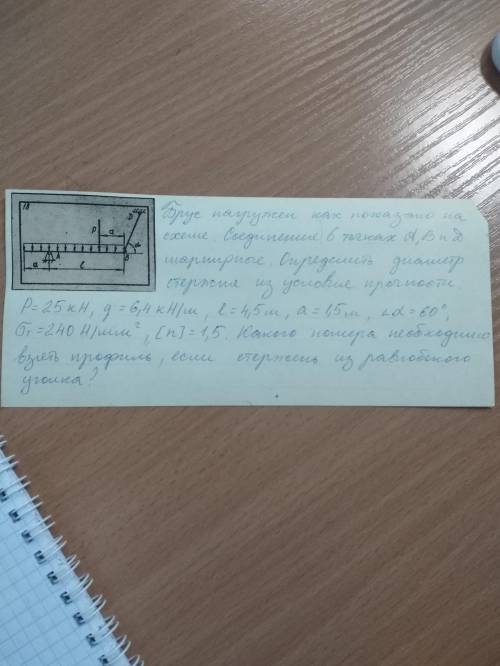 18
P
a
D
A
α
B
a
l
Брус нагружен как показано на
схеме. Соединение в точках А, В и D
шарнирное. Определить диаметр
стержня из условия прочности.
P = 25 кН, q = 6,4 кН/м, l = 4,5 м, a = 1,5 м, ∠α = 60°,
σт = 240 Н/мм², [n] = 1,5. Какого номера необходимо
взять профиль, если стержень из равнобокого
уголка?